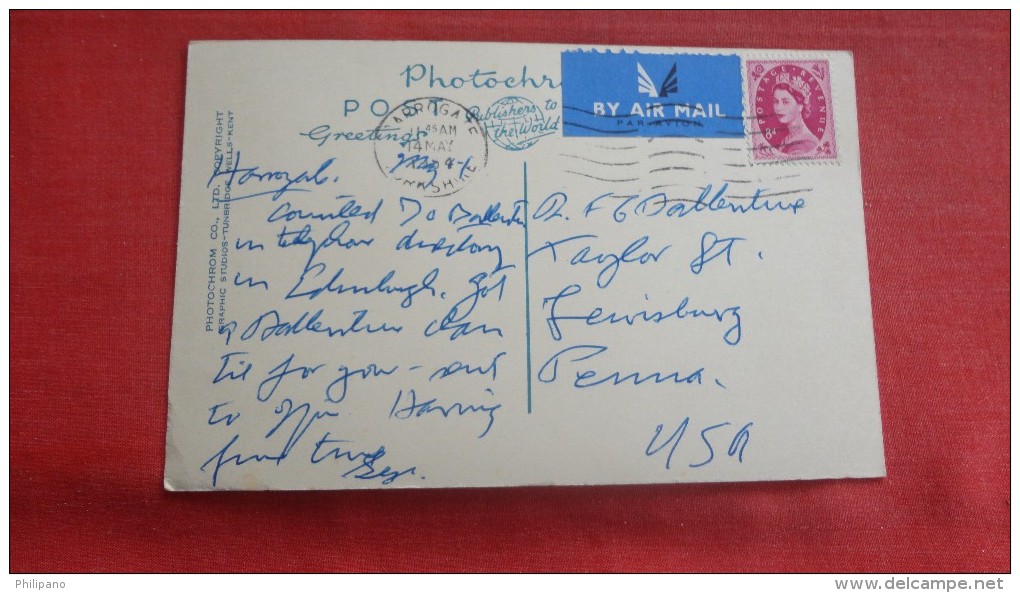 Photochr
POST
Greetings
Publishers to
the World
HARROGATE
11 45 AM
14 MAY
YORKSHIRE
BY AIR MAIL
PAR AVION
POSTAGE REVENUE
8d
PHOTOCHROM CO., LTD. COPYRIGHT
GRAPHIC STUDIOS-TUNBRIDGE WELLS-KENT
Counted 70
in telephone directory
in Edinburgh. Got
a Ballentine clan
tie for you - sent
to office Having
fine time
Ballentine
Taylor St.
Lewisburg
Penna.
USA
Philipano
www.delcampe.net